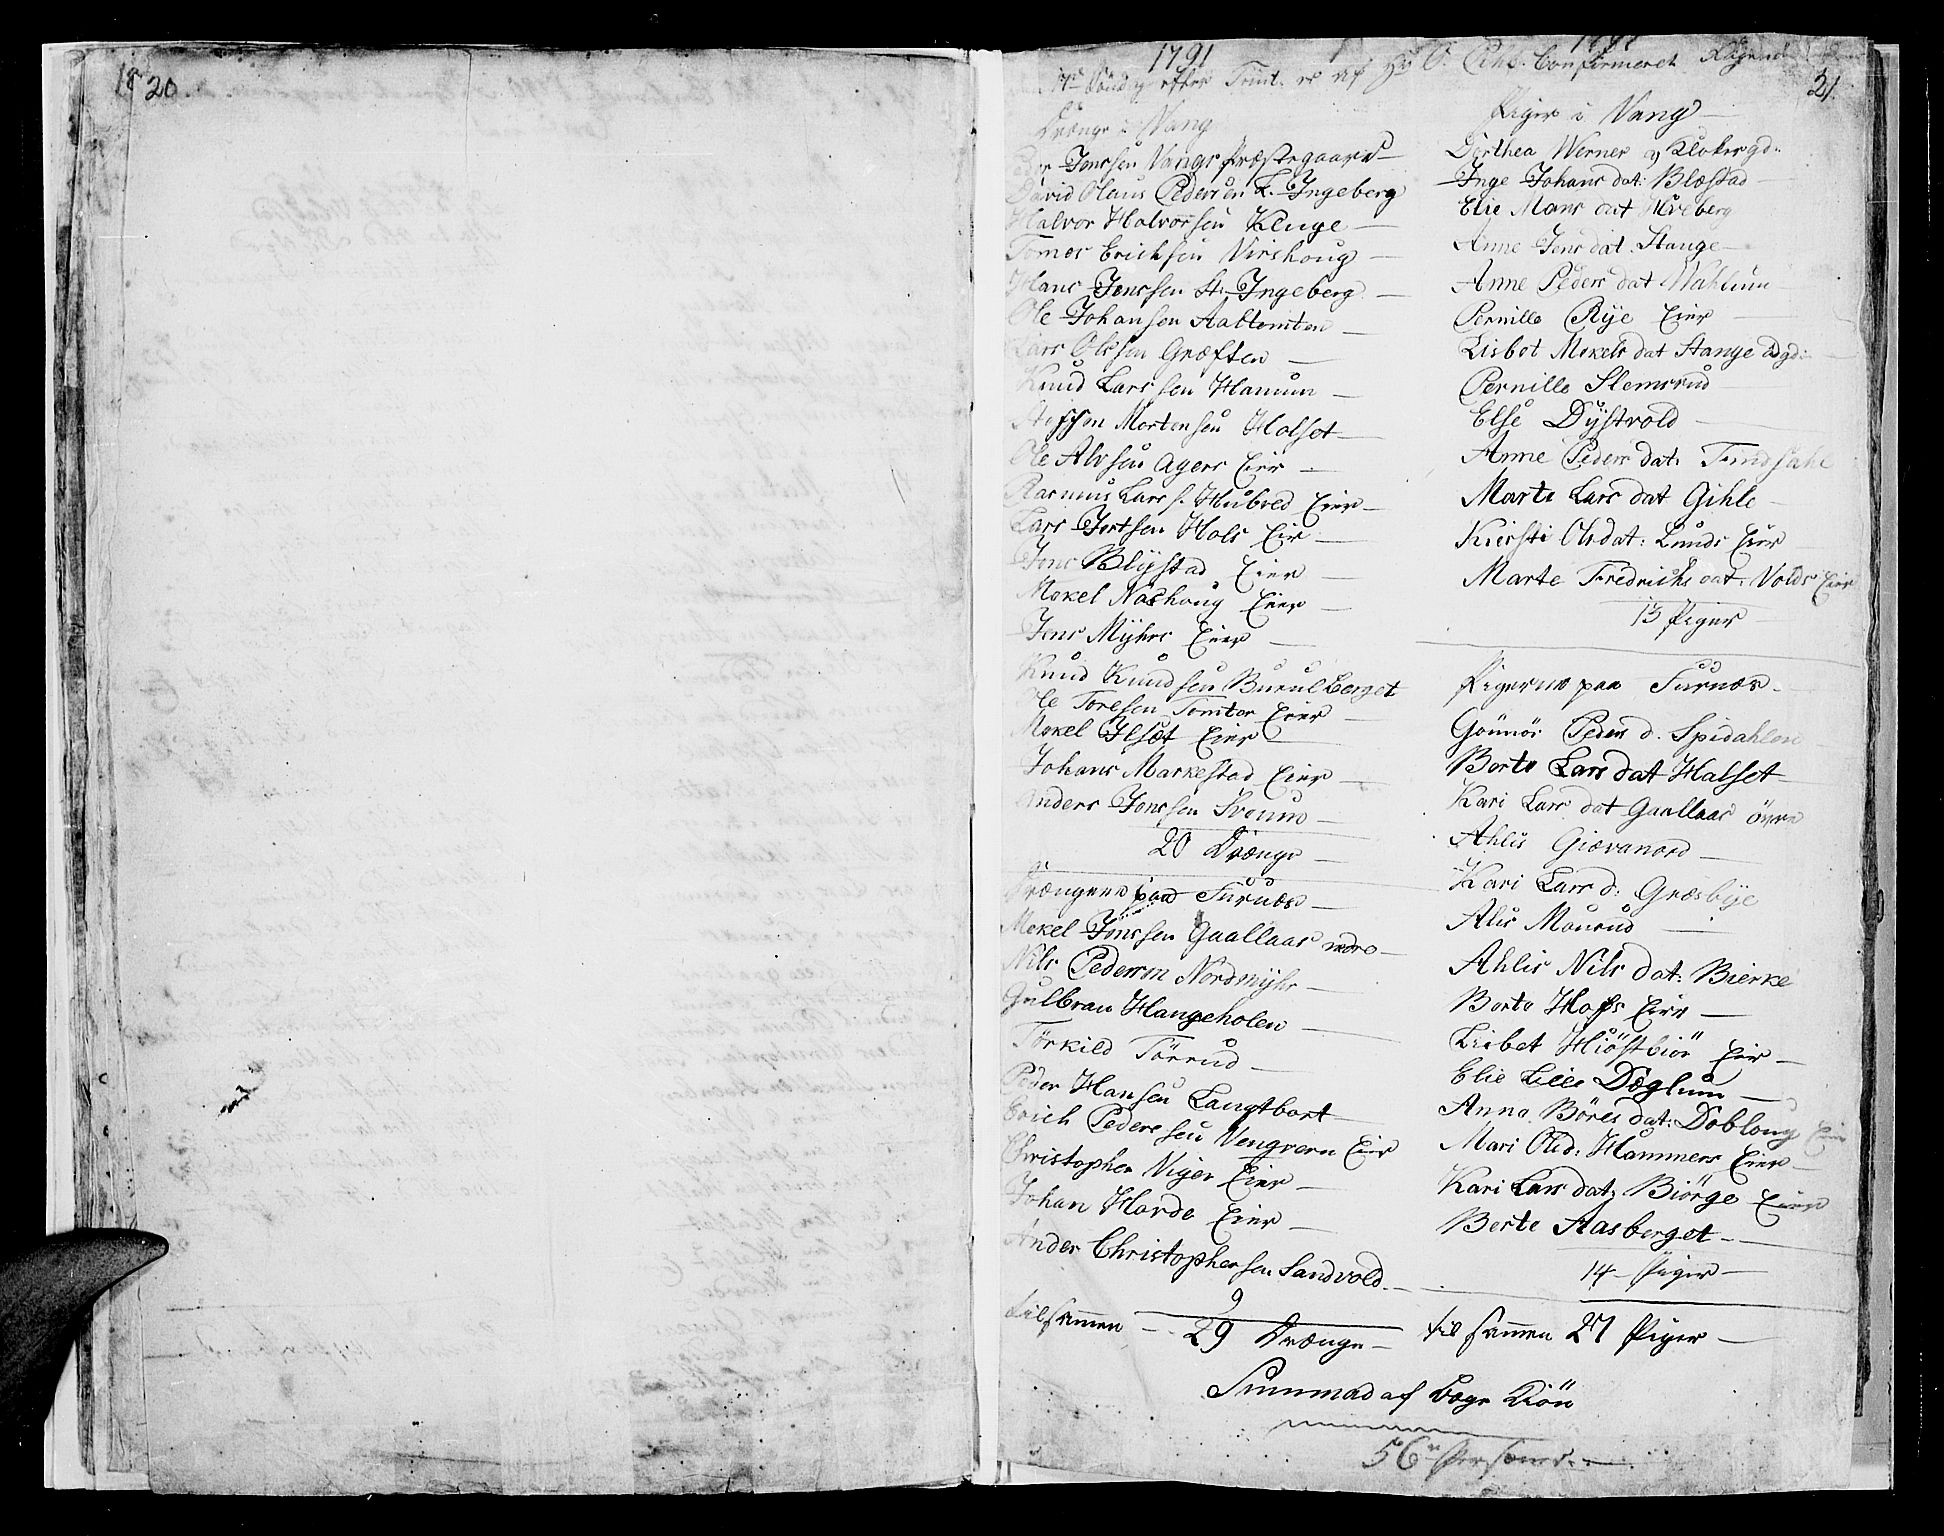 20
1791
21
Søndag efter Trinit. er af Hr O. Pihl Confirmeret
Drænge i Vang
Jenssen Vangs Præstegaard
David Olaus Pedersen L. Ingeberg
Halvor Halvorsen Kluge
Tomes Erichsen Virshoug
Hans Jenssen St. Ingeberg
Ole Johansen Aaltomten
Lars Olssen Græften
Knud Larssen Hamum
Steffen Mortensen Holset
Ole Alvsen Agers Eier
Rasmus Lars s. Hubred Eier
Lars Jertsen Hols Eir
Jens Blystad Eier
Mekel Nashoug Eier
Jens Myhrs Eier
Knud Knudsen Burulberget
Ole Toresen Tomter Eier
Mekel Ilset Eier
Johans Markestad Eier
Anders Jenssen Svenum
20 Drænge
Drængene paa Furnæs
Mekel Jönssen Gaallaas nedre
Nils Pedersen Nordmyhr
Gulbran Hangeholen
Törkild Törrud
Peder Hansen Langtbort
Erich Pedersen Vengvern Eier
Christopher Viger Eier
Johan Horde Eier
Ander Christophersen Sandvold
9
tilsammen 29 Drænge
Piger i Vang
Dorthea Werner Klokergd.
Inge Johans dat: Blæstad
Elie Mons dat Hveberg
Anne Jens dat. Stange
Anne Peders dat Wahlum
Pernille Rye Eier
Lisbet Mekels dat Stange Ødgd:
Pernille Slemsrud
Else Dystvold
Anne Peders dat. Findsahl
Marte Lars dat Gihle
Kiersti Olsdat: Lunds Eier
Marte Fredrichs dat. Volds Eier
13 Piger
Pigerne paa Furnæs
Gönnör Peders d. Spidahlen
Berte Lars dat Halset
Kari Lars dat Gaallaas övre
Ahlis Giævanord
Kari Lars d: Græsbye
Alis Mourud
Ahlis Nils dat: Bierke
Berte Hofs Eier
Lisbet Hiöstbiör Eier
Elie Lille Dæglum
Anne Böres dat: Dobloug Eier
Mari Olsd: Hammers Eier
Kari Lars dat, Biörge Eier
Berte Aasberget
14 Piger
til sammen 27 Piger
Summa af begge Kiön
56 Persone